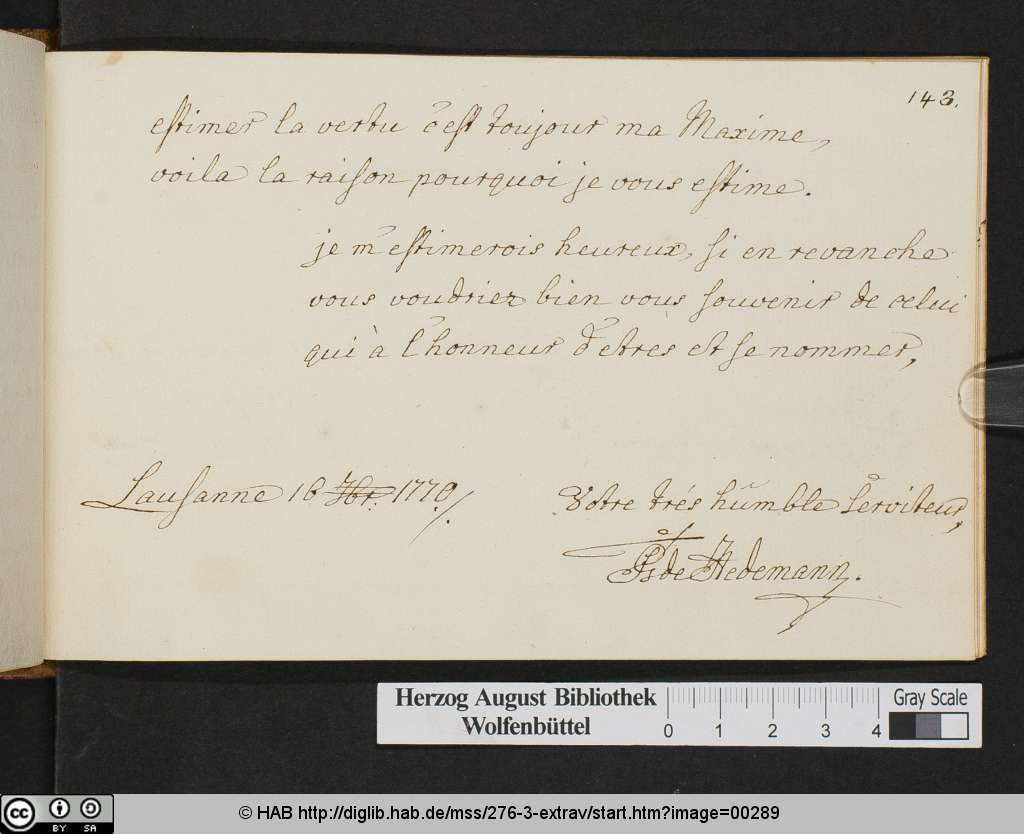 143.
estimer la vertu c'est toujour ma Maxime,
voila la raison pourquoi je vous estime.
je m'estimerois heureux, si en revanche
vous voudriez bien vous souvenir de celui
qui à l'honneur d'etres et se nommer,
Lausanne 16 1770/.
Votre trés humble serviteur,
de Hedemann.
Herzog August Bibliothek
Wolfenbüttel
0 1 2 3 4
Gray Scale
cc BY SA
© HAB http://diglib.hab.de/mss/276-3-extrav/start.htm?image=00289